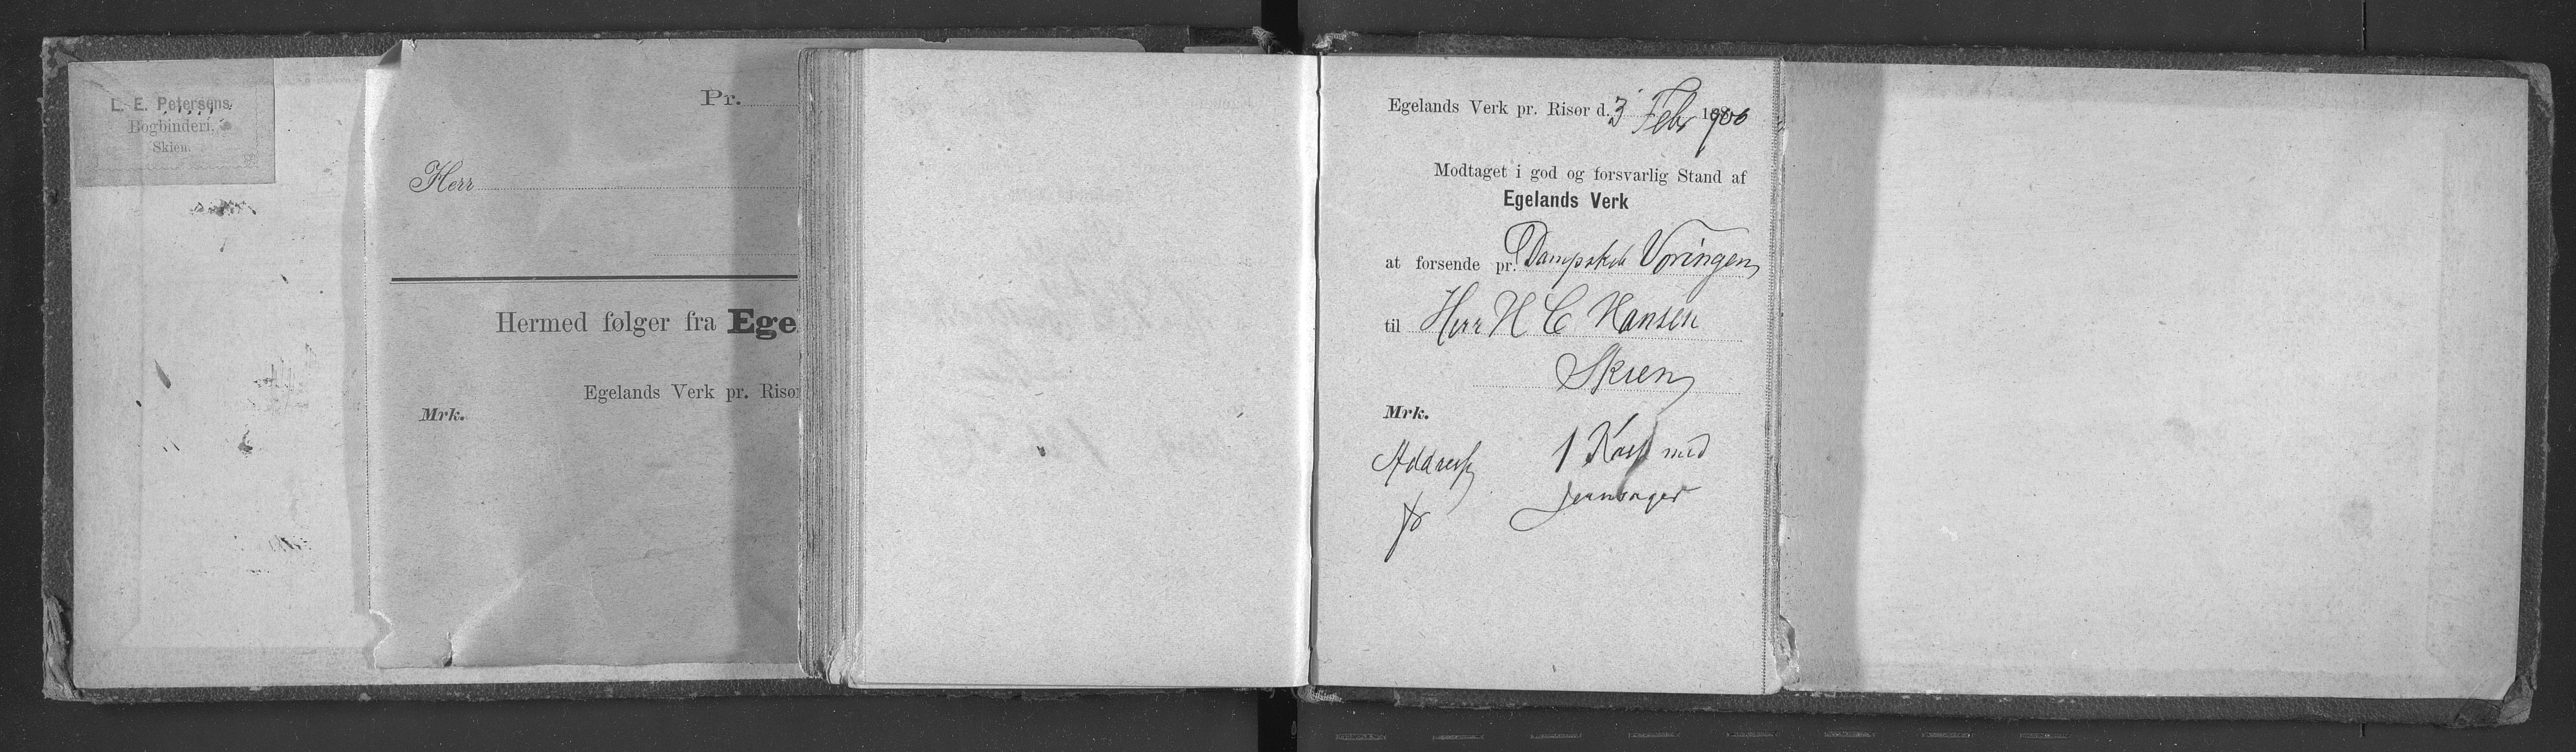 L. E. Petersens
Bogbinderi.
Skien.
Pr.
Herr
Hermed følger fra Ege
Egelands Verk pr. Risør
Mrk.
Egelands Verk pr. Risør d. 3 Febr 1900
Modtaget i god og forsvarlig Stand af
Egelands Verk
at forsende pr. Dampskib Vøringen
til Herr H C Hansen
Skien
Mrk.
Addresse 1 Kasse med
Jernsager